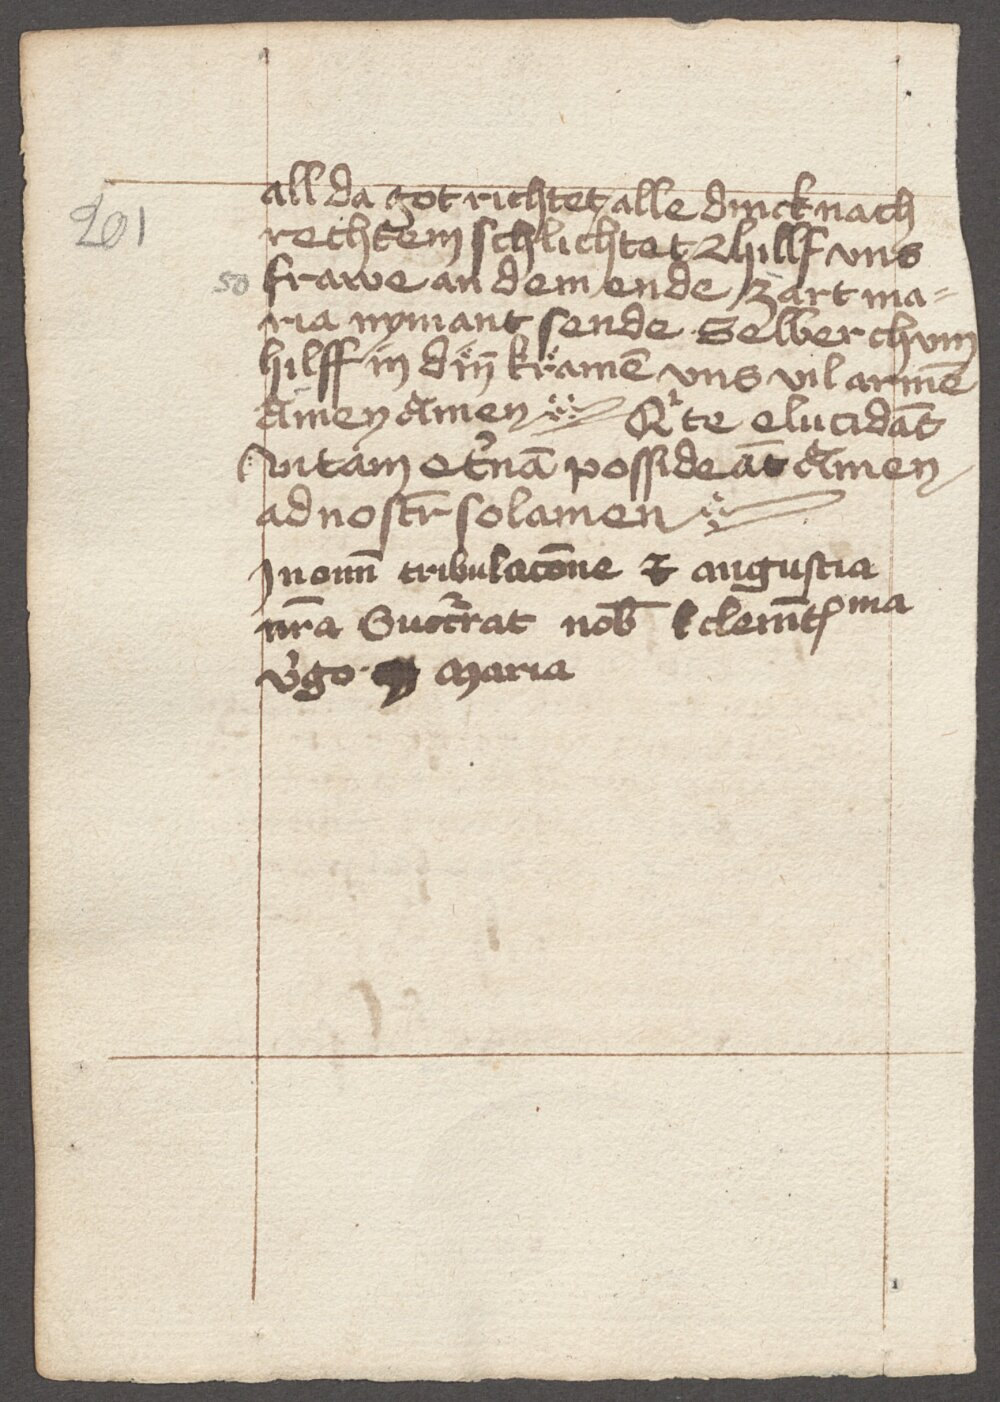 201
all da got richtet, alle dinck nach
rechtem schlichtet hillf vns
50 frawe an dem ende zart ma=
ria nymant sende Selber chum
hilff in dein kramē vns vil armē
Amen Amen Qr te elucidāt
vitam et'nā possideāt Amen
ad nostr̄ solamen
In omī tribulacōne et angustia
nr̄a Succ'rat nob̄ clemēt ma
v'go maria